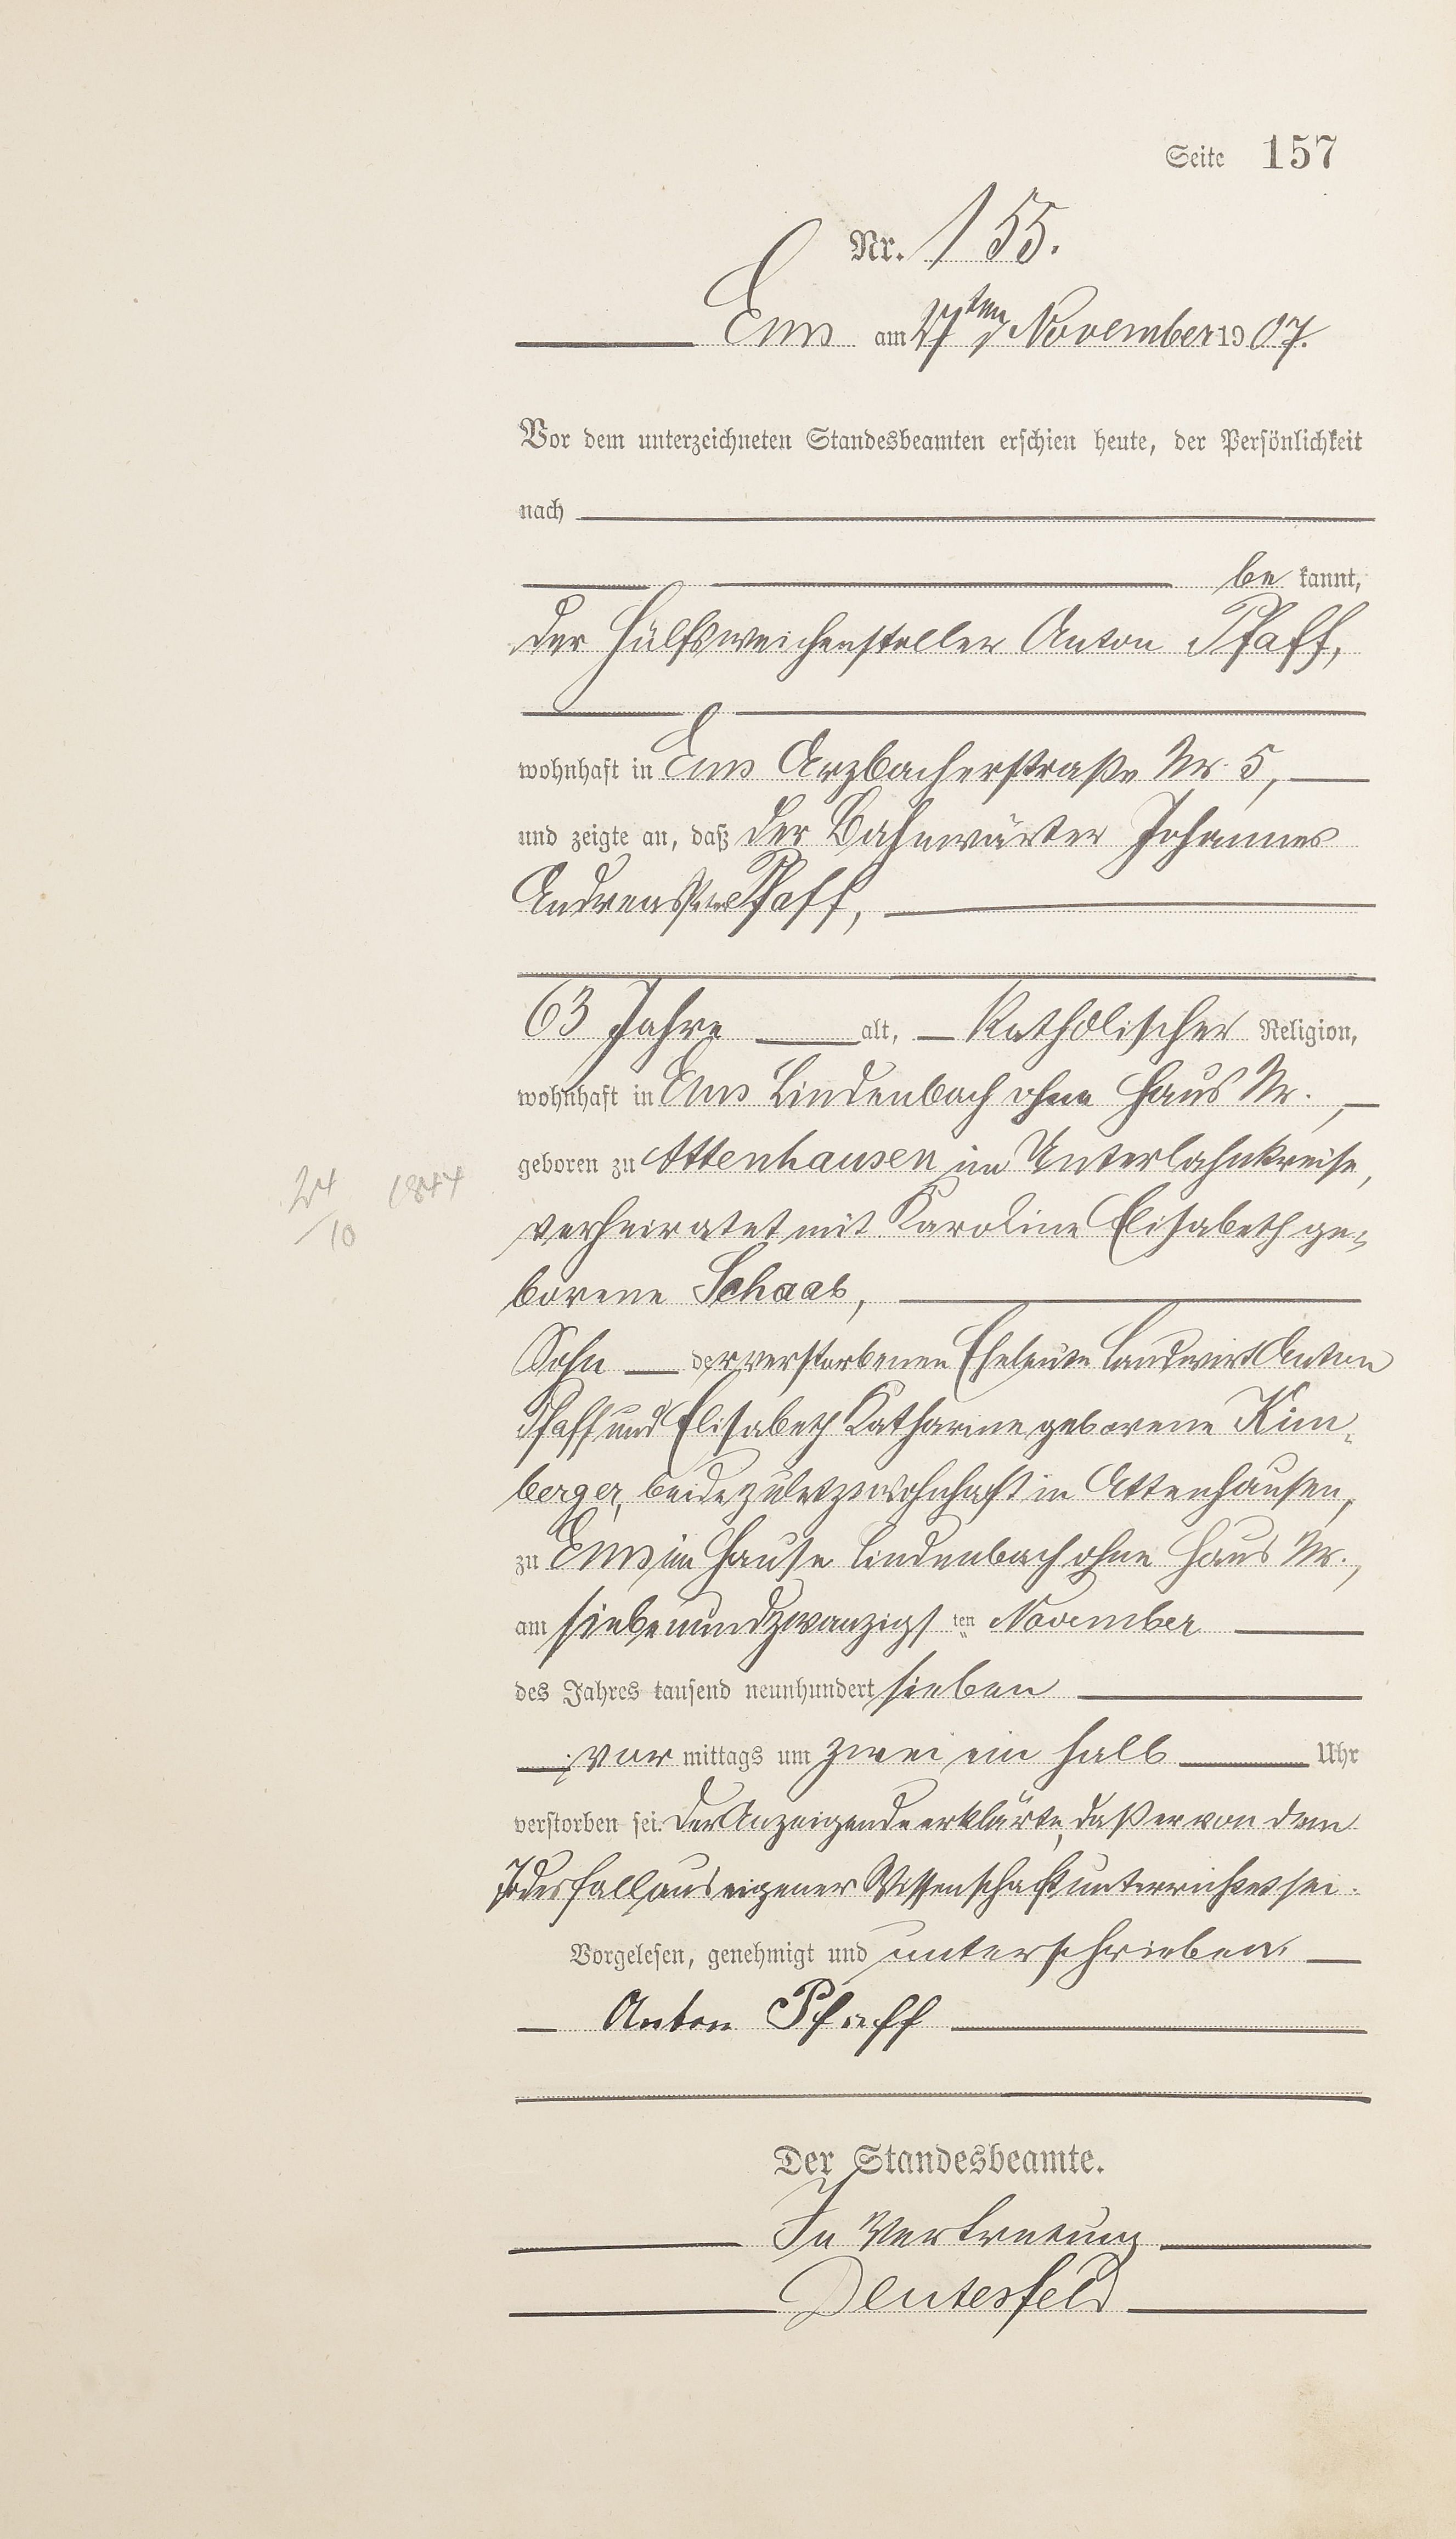 Seite 157
Nr. 155.
Ems am 27ten November 1907.
Vor dem unterzeichneten Standesbeamten erschien heute, der Persönlichkeit
nach
be kannt,
der Hülfsweichensteller Anton Pfaff,
wohnhaft in Ems Arzbacherstraße Nr. 5,
und zeigte an, daß der Bahnwärter Johannes
Andreas Peter Pfaff,
63 Jahre alt, Katholischer Religion,
wohnhaft in Ems Lindenbach ohne Haus Nr.,
geboren zu Attenhausen im Unterlahnkreise,
24/10 1844
verheiratet mit Karoline Elisabeth ge-
borene Schaab,
Sohn der verstorbenen Eheleute Landwirt Anton
Pfaff und Elisabeth Katharine geborene Kim-
berger, beide zuletzt wohnhaft in Attenhausen,
zu Ems im Hause Lindenbach ohne Haus Nr.,
am siebenundzwanzigsten November
des Jahres tausend neunhundert sieben
vor mittags um zwei ein halb Uhr
verstorben sei. Der Anzeigende erklärte, daß er von dem
Todesfall aus eigener Wissenschaft unterrichtet sei.
Vorgelesen, genehmigt und unterschrieben.
Anton Pfaff
Der Standesbeamte.
In Vertretung